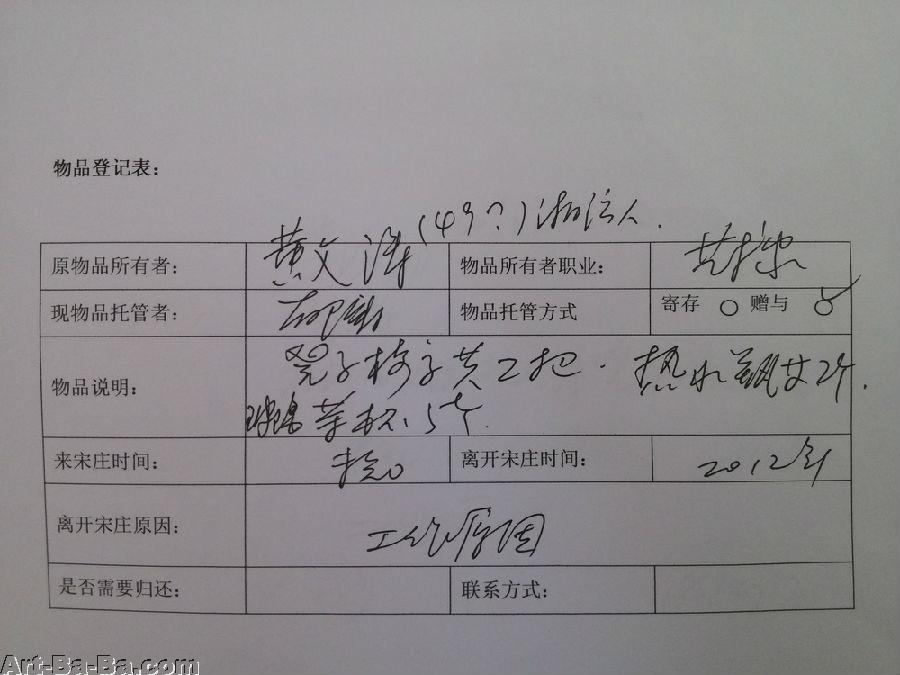 物品登记表：
黄文海（49？）湖注人．
原物品所有者： 物品所有者职业：
现物品托管者： 物品托管方式 寄存 ○ 赠与 ○✓
物品说明： 凳子椅子共2把．热水瓶共2个．
玻璃茶杯、5个
来宋庄时间： 离开宋庄时间： 2012年
离开宋庄原因： 工作原因
是否需要归还： 联系方式：
Art-Ba-Ba.com